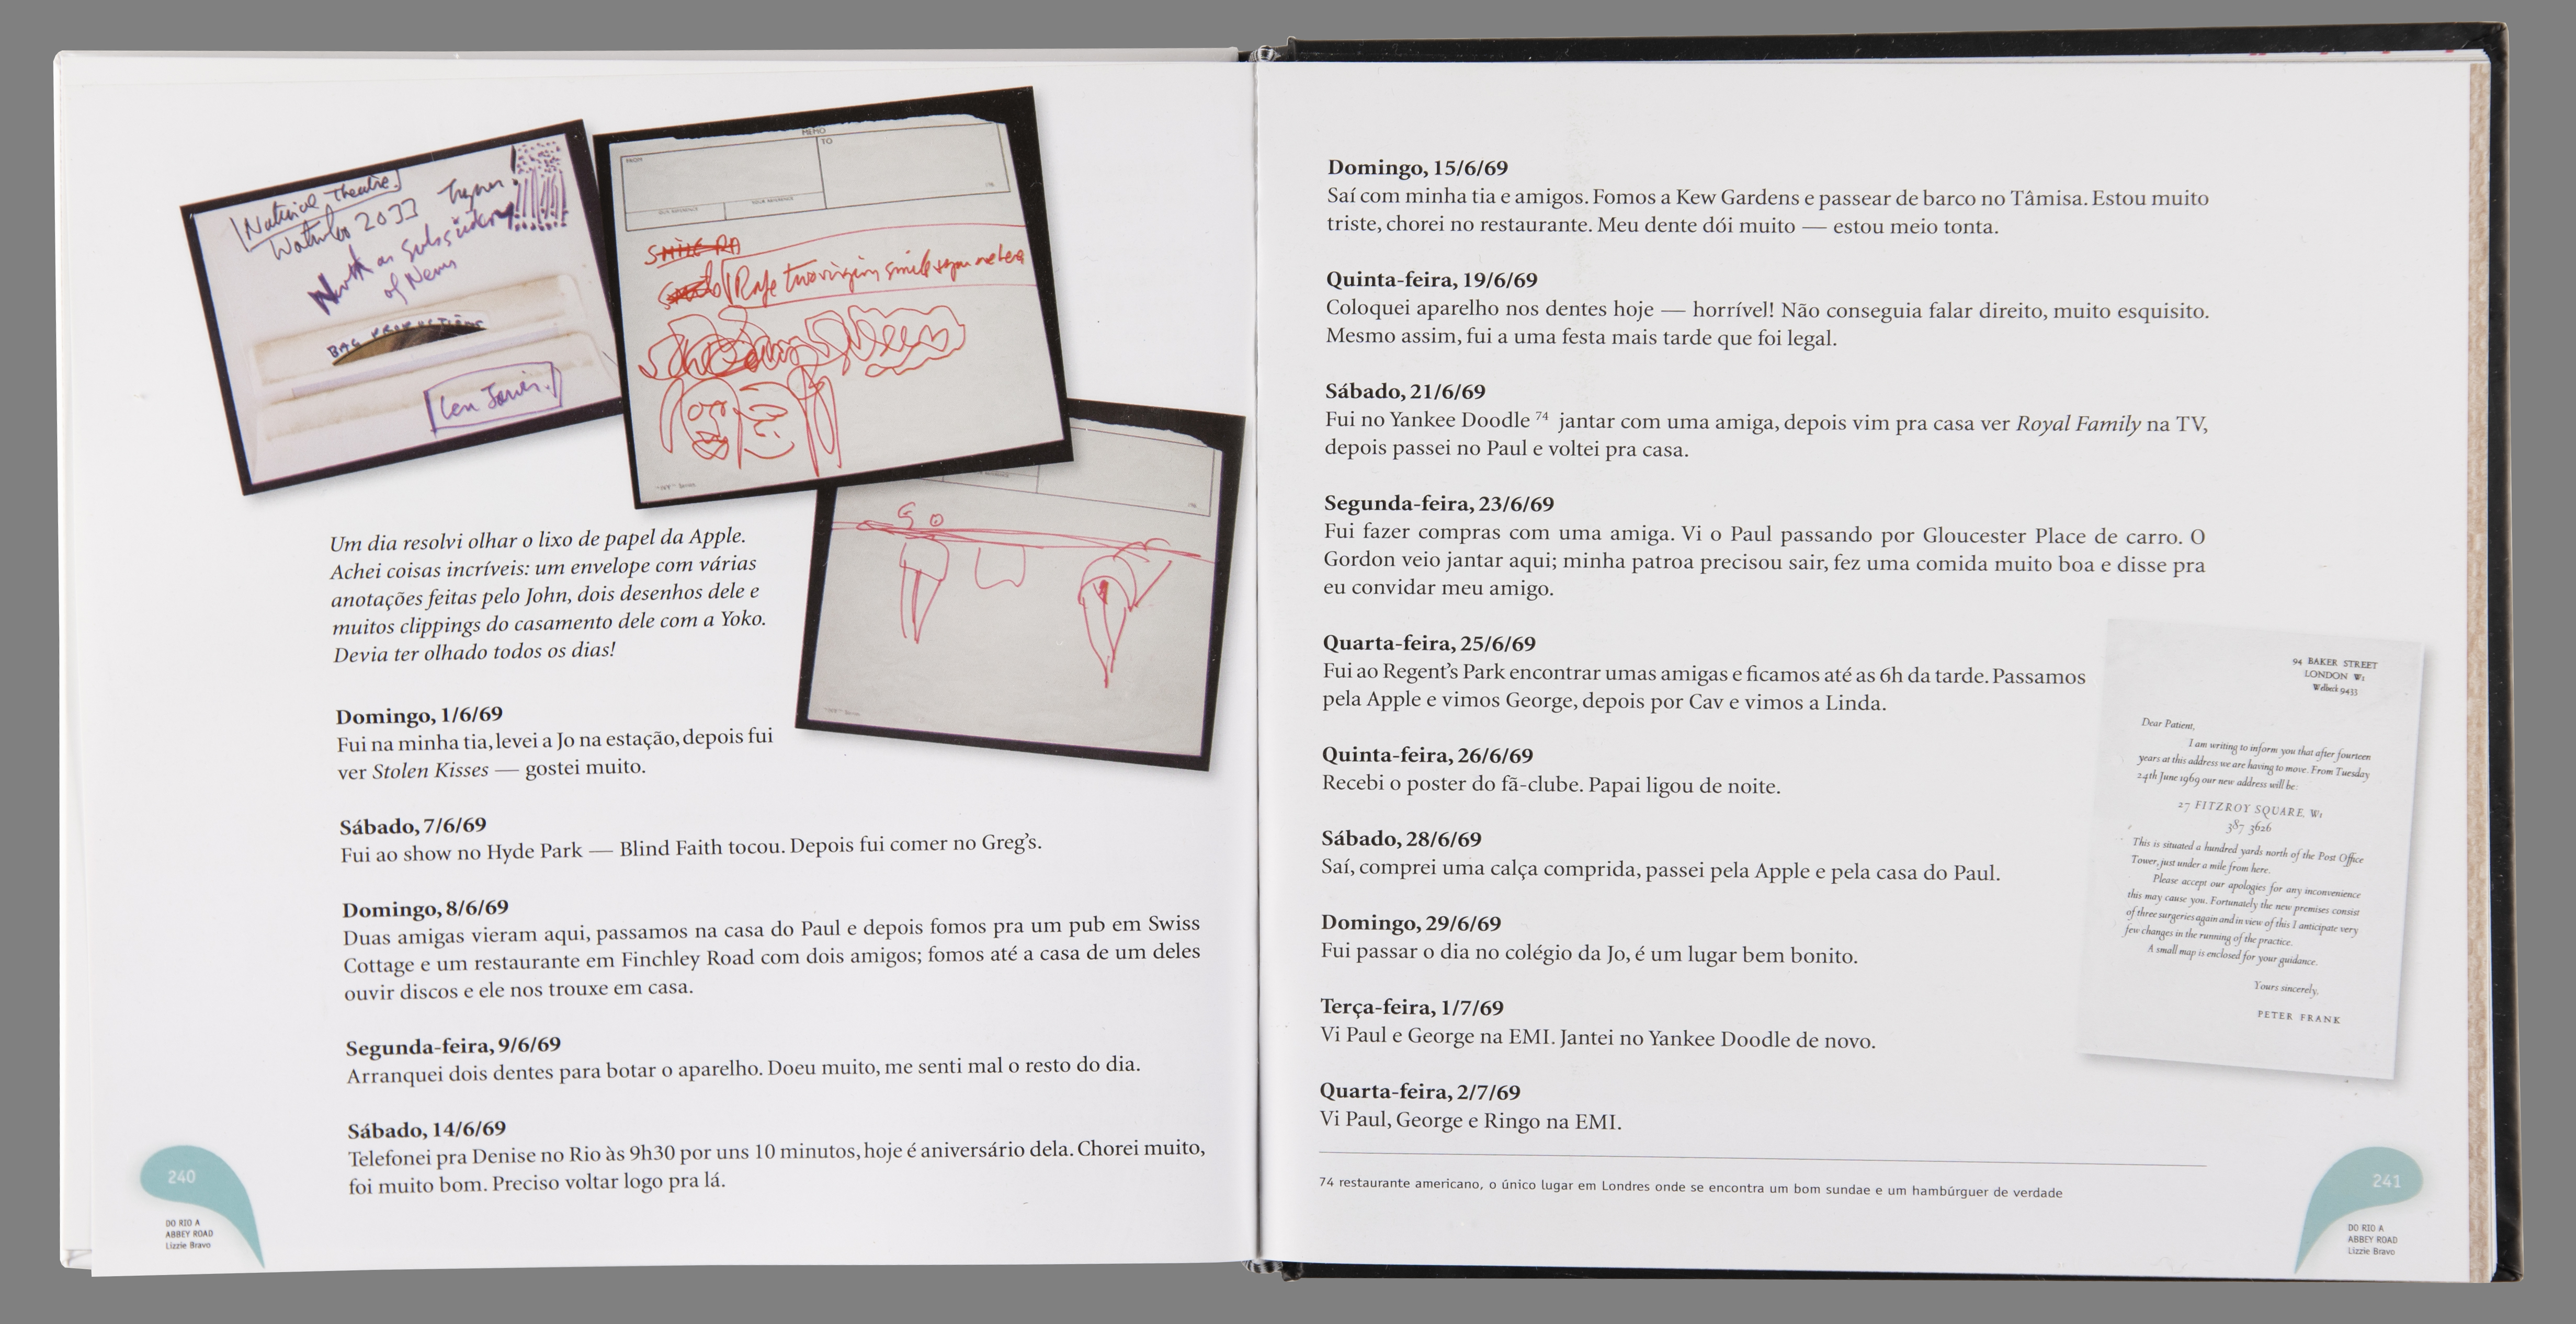 National Theatre.
Waterloo 2033
of News
BAG PRODUCTIONS
MEMO
FROM
TO
OUR REFERENCE
YOUR REFERENCE
SMILE
Rape two virgin smile
"NY" Series
GO
Um dia resolvi olhar o lixo de papel da Apple.
Achei coisas incríveis: um envelope com várias
anotações feitas pelo John, dois desenhos dele e
muitos clippings do casamento dele com a Yoko.
Devia ter olhado todos os dias!
Domingo, 1/6/69
Fui na minha tia, levei a Jo na estação, depois fui
ver Stolen Kisses — gostei muito.
Sábado, 7/6/69
Fui ao show no Hyde Park — Blind Faith tocou. Depois fui comer no Greg’s.
Domingo, 8/6/69
Duas amigas vieram aqui, passamos na casa do Paul e depois fomos pra um pub em Swiss
Cottage e um restaurante em Finchley Road com dois amigos; fomos até a casa de um deles
ouvir discos e ele nos trouxe em casa.
Segunda-feira, 9/6/69
Arranquei dois dentes para botar o aparelho. Doeu muito, me senti mal o resto do dia.
Sábado, 14/6/69
Telefonei pra Denise no Rio às 9h30 por uns 10 minutos, hoje é aniversário dela. Chorei muito,
foi muito bom. Preciso voltar logo pra lá.
240
DO RIO A
ABBEY ROAD
Lizzie Bravo
Domingo, 15/6/69
Saí com minha tia e amigos. Fomos a Kew Gardens e passear de barco no Tâmisa. Estou muito
triste, chorei no restaurante. Meu dente dói muito — estou meio tonta.
Quinta-feira, 19/6/69
Coloquei aparelho nos dentes hoje — horrível! Não conseguia falar direito, muito esquisito.
Mesmo assim, fui a uma festa mais tarde que foi legal.
Sábado, 21/6/69
Fui no Yankee Doodle 74 jantar com uma amiga, depois vim pra casa ver Royal Family na TV,
depois passei no Paul e voltei pra casa.
Segunda-feira, 23/6/69
Fui fazer compras com uma amiga. Vi o Paul passando por Gloucester Place de carro. O
Gordon veio jantar aqui; minha patroa precisou sair, fez uma comida muito boa e disse pra
eu convidar meu amigo.
Quarta-feira, 25/6/69
Fui ao Regent’s Park encontrar umas amigas e ficamos até as 6h da tarde. Passamos
pela Apple e vimos George, depois por Cav e vimos a Linda.
Quinta-feira, 26/6/69
Recebi o poster do fã-clube. Papai ligou de noite.
Sábado, 28/6/69
Saí, comprei uma calça comprida, passei pela Apple e pela casa do Paul.
Domingo, 29/6/69
Fui passar o dia no colégio da Jo, é um lugar bem bonito.
Terça-feira, 1/7/69
Vi Paul e George na EMI. Jantei no Yankee Doodle de novo.
Quarta-feira, 2/7/69
Vi Paul, George e Ringo na EMI.
74 restaurante americano, o único lugar em Londres onde se encontra um bom sundae e um hambúrguer de verdade
94 BAKER STREET
LONDON W1
Welbeck 9433
Dear Patient,
I am writing to inform you that after fourteen
years at this address we are having to move. From Tuesday
24th June 1969 our new address will be:
27 FITZROY SQUARE, W1
387 3626
This is situated a hundred yards north of the Post Office
Tower, just under a mile from here.
Please accept our apologies for any inconvenience
this may cause you. Fortunately the new premises consist
of three surgeries again and in view of this I anticipate very
few changes in the running of the practice.
A small map is enclosed for your guidance.
Yours sincerely,
PETER FRANK
241
DO RIO A
ABBEY ROAD
Lizzie Bravo